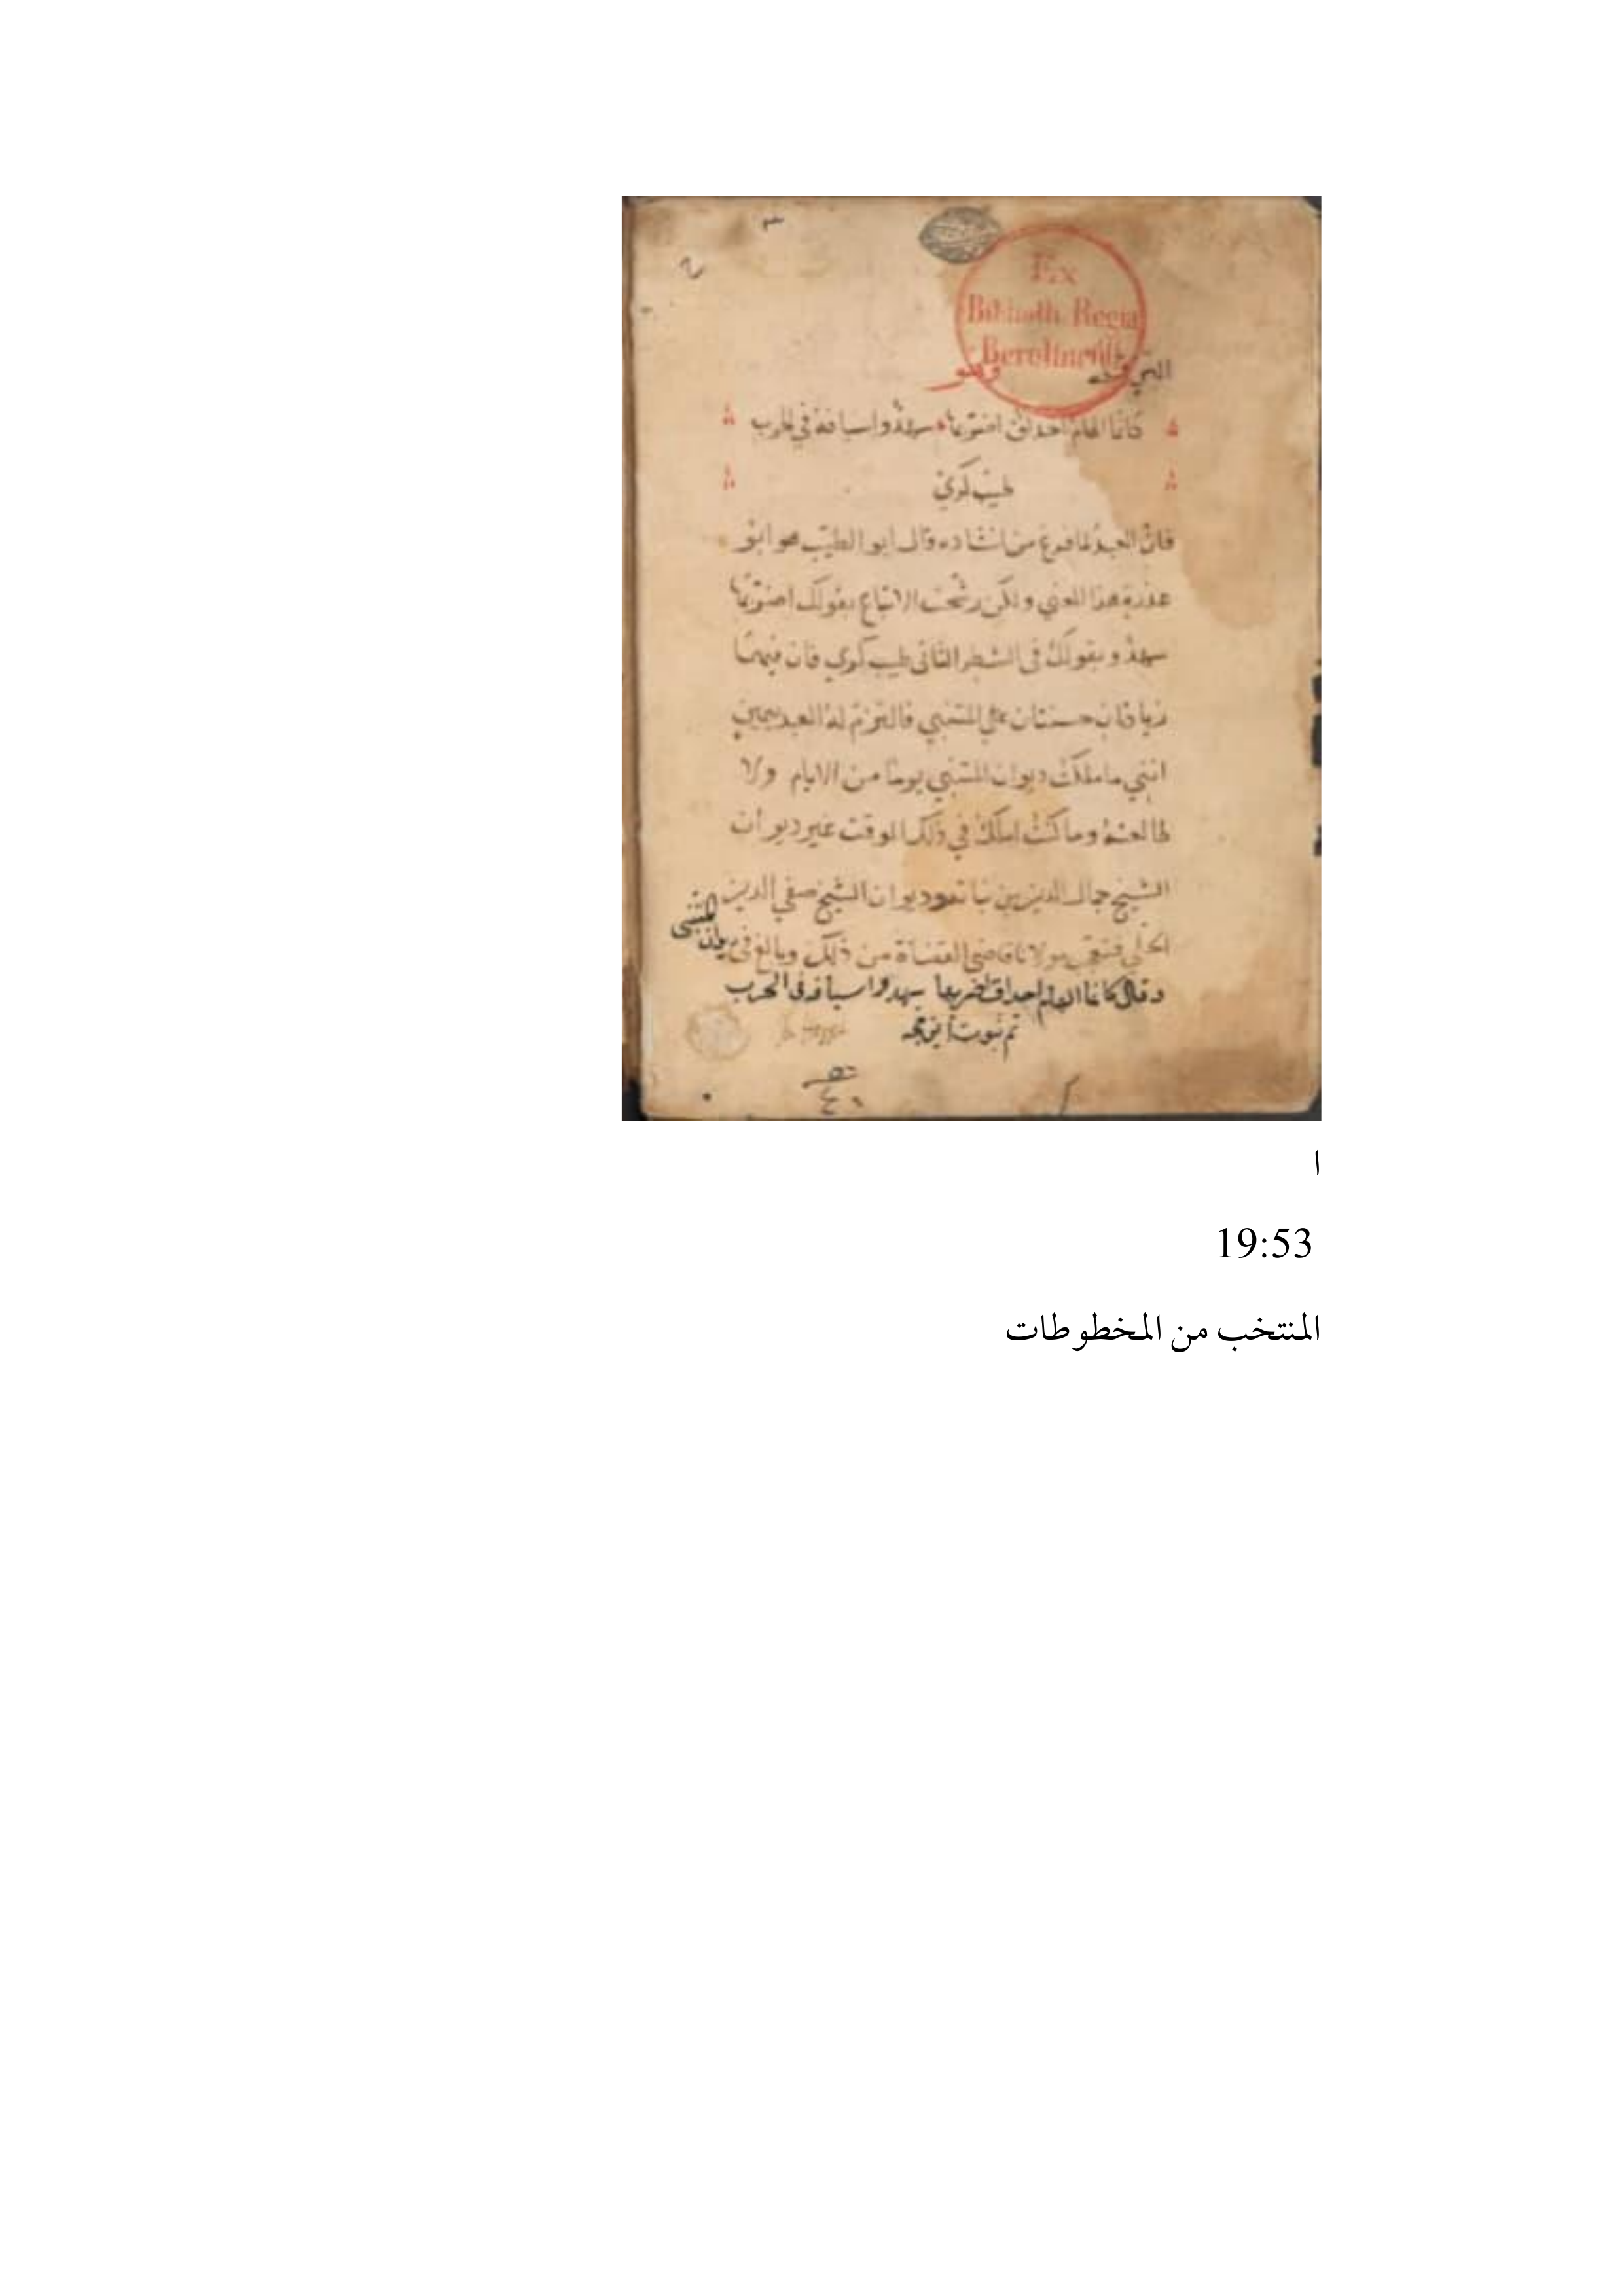 Ex
Biblioth. Regia
Berolinensi
وهو
كانما الهام احداق اضر بها سهد واسيافه في الحرب
طيب كري
فان العبد لما فرغ من انشاده وقال ابو الطيب هو ابو
عذرة هذا المعني ولكن رشحت الاتباع بقولك اضر بها
سهد و بقولك في الشطر الثاني طيب كري فان فيهما
زيادتان حسنتان علي المتنبي فالتزم له العبد بيمين
انني ما ملكت ديوان المتنبي يوما من الايام ولا
طالعته وما كنت املك في ذلك الوقت غير ديوان
الشيخ جمال الدين بن نباته وديوان الشيخ صفي الدين
الحلي فتعجب مولانا قاضي القضاة من ذلك وبالغ في
ديوان المتنبي
وقال كانما الهام احداق اضر بها سهد واسيافه في الحرب
تم
ا
19:53
المنتخب من المخطوطات